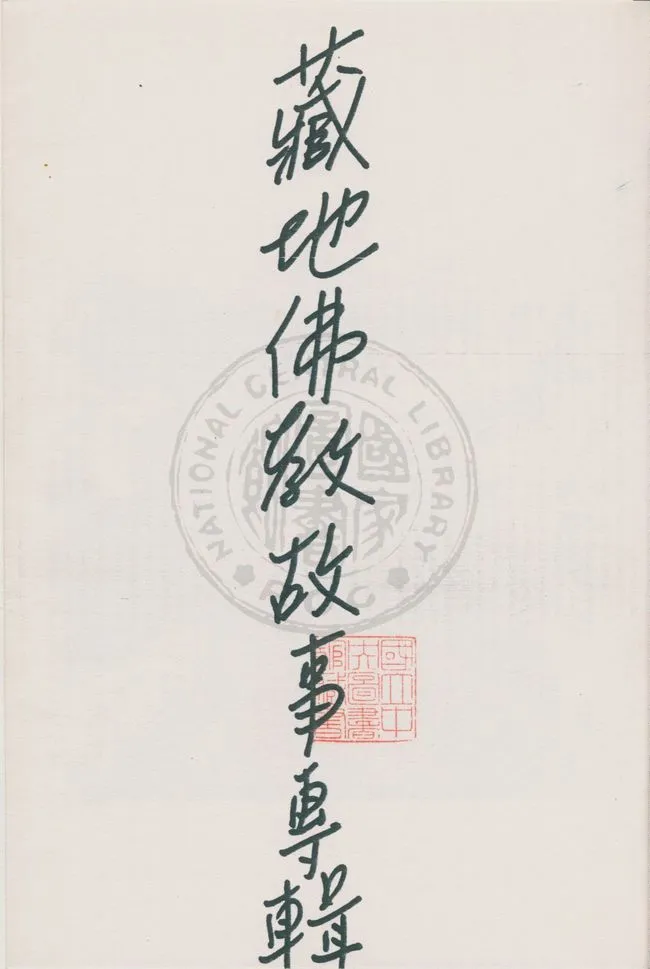 藏地佛教故事專輯
NATIONAL CENTRAL LIBRARY
國家圖書館
國立中央圖書館